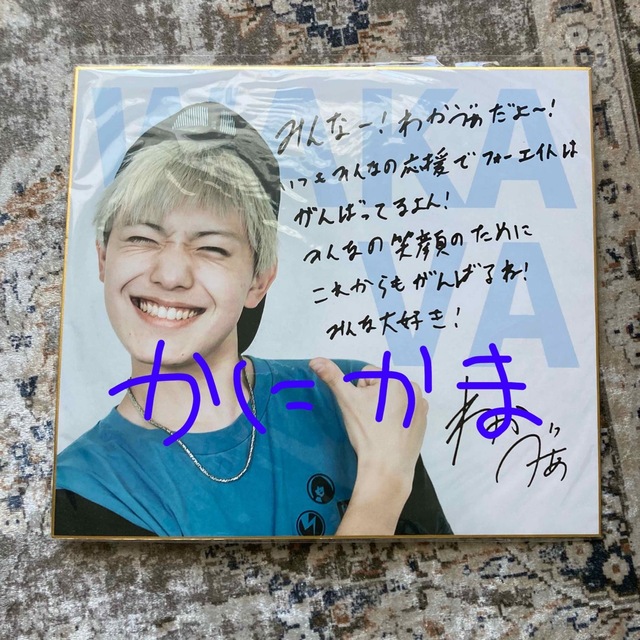 WAKA
VA
みんなー!わかゔぁだよ〜!
いつもみんなの応援でフォーエイトは
がんばってるよん!
みんなの笑顔のために
これからもがんばるね!
みんな大好き!
かにかま
わか
ゔぁ